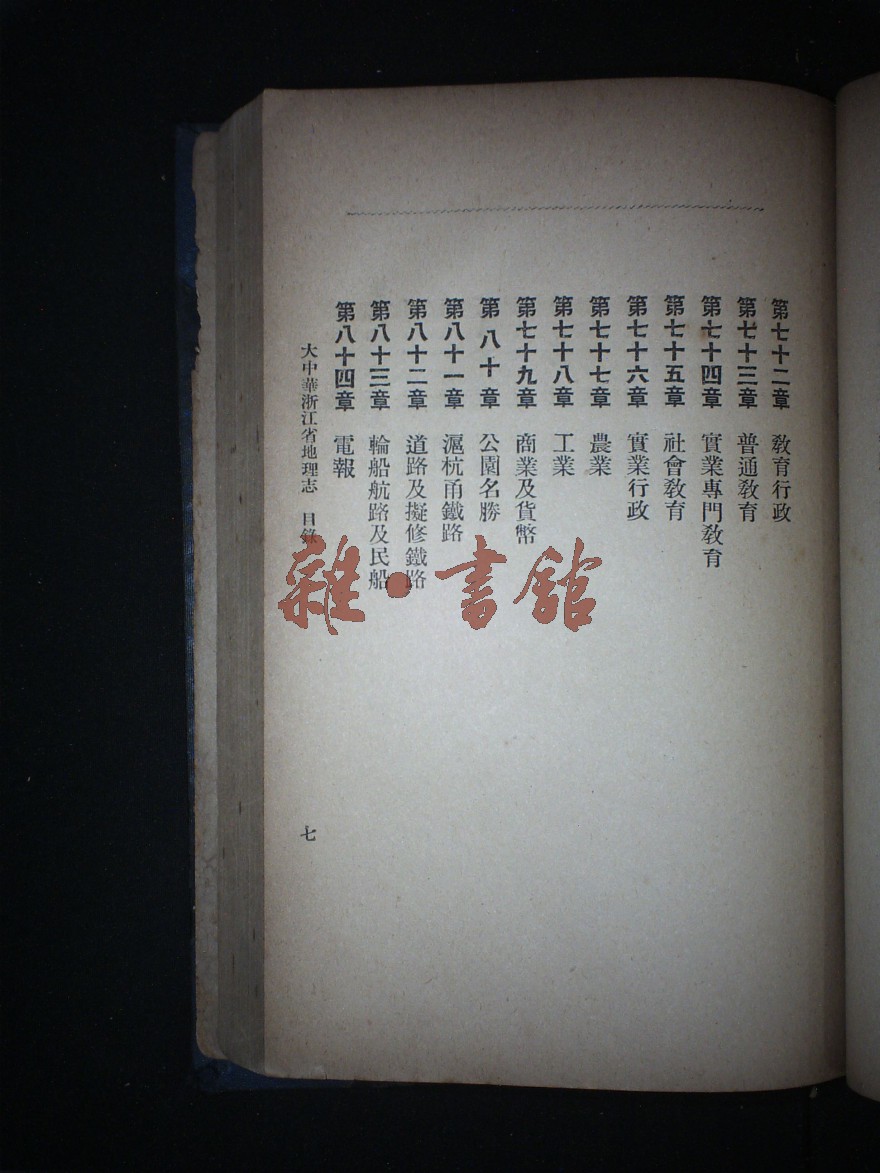 第七十二章 教育行政
第七十三章 普通教育
第七十四章 實業專門教育
第七十五章 社會教育
第七十六章 實業行政
第七十七章 農業
第七十八章 工業
第七十九章 商業及貨幣
第八十章 公園名勝
第八十一章 滬杭甬鐵路
第八十二章 道路及擬修鐵路
第八十三章 輪船航路及民船
第八十四章 電報
大中華浙江省地理志 目錄
七
雜·書館